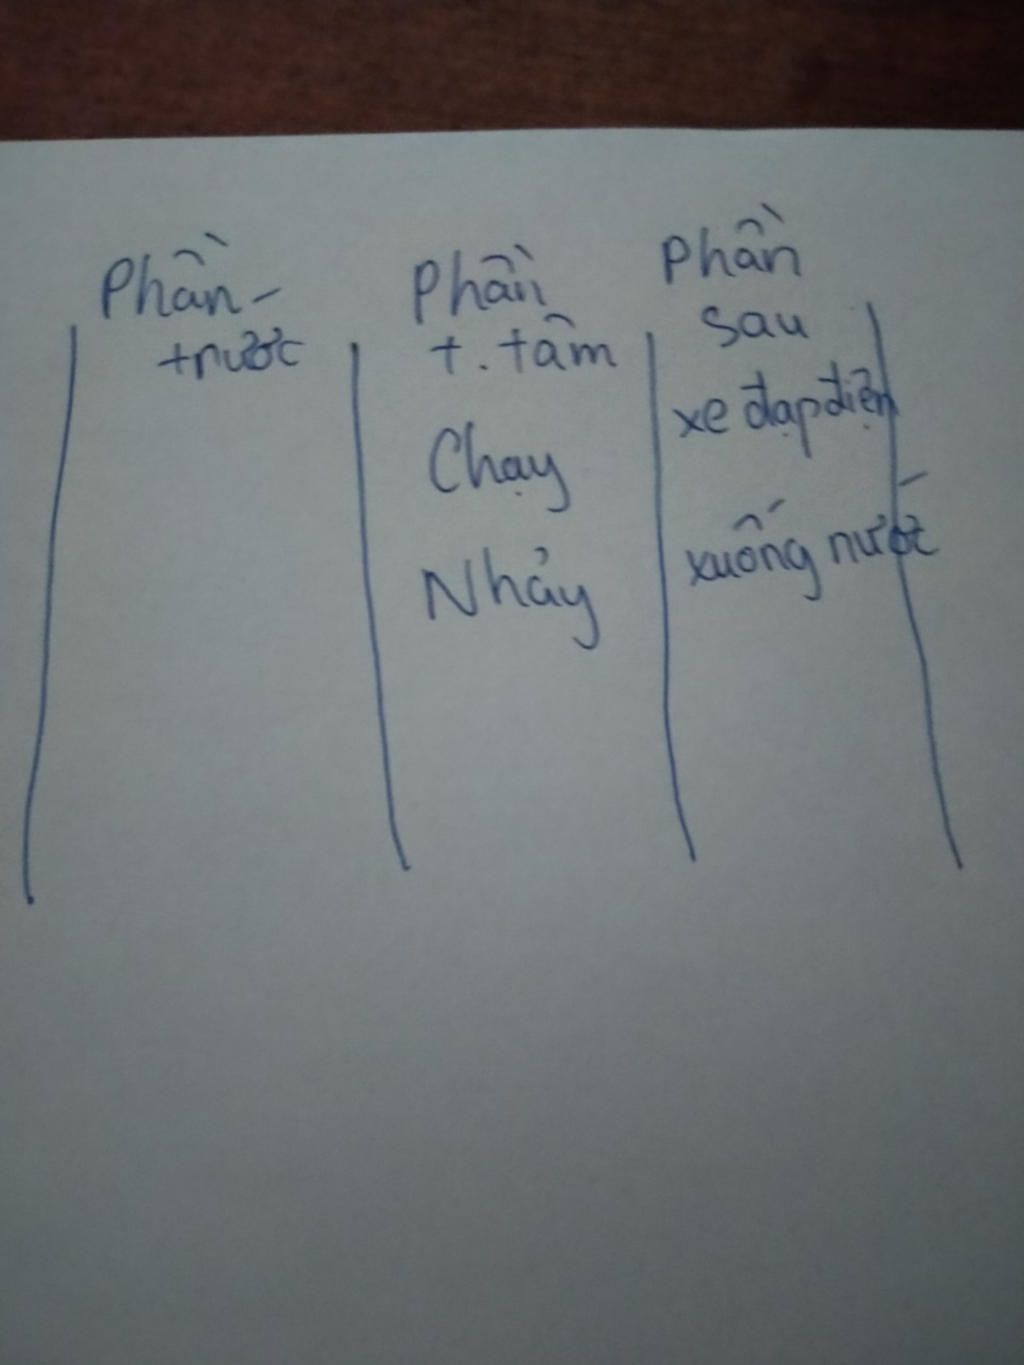 Phần trước
Phần t. tâm
Phần sau
Chạy
xe đạp điện
Nhảy
xuống nước